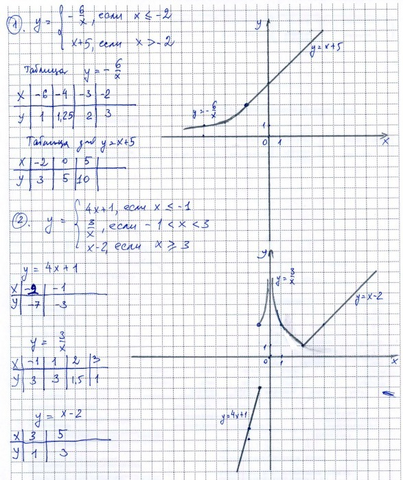 1. y = { -6/x, если x ≤ -2
x+5, если x > -2
Таблица y = -6/x
x | -6 | -4 | -3 | -2
y | 1 | 1,25 | 2 | 3
Таблица для y = x+5
x | -2 | 0 | 5
y | 3 | 5 | 10
y
y = x+5
y = -6/x
1
0 1
x
2. y = { 4x+1, если x ≤ -1
3/x, если -1 < x < 3
x-2, если x ≥ 3
y = 4x+1
x | -2 | -1
y | -7 | -3
y = 3/x
x | -1 | 1 | 2 | 3
y | 3 | 3 | 1,5 | 1
y = x-2
x | 3 | 5
y | 1 | 3
y
y = 3/x
y = x-2
1
0 1
x
y = 4x+1